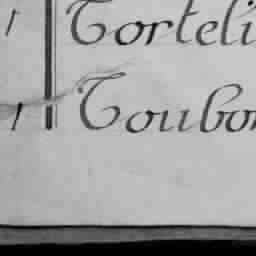 1 Torteli
1 Toubon